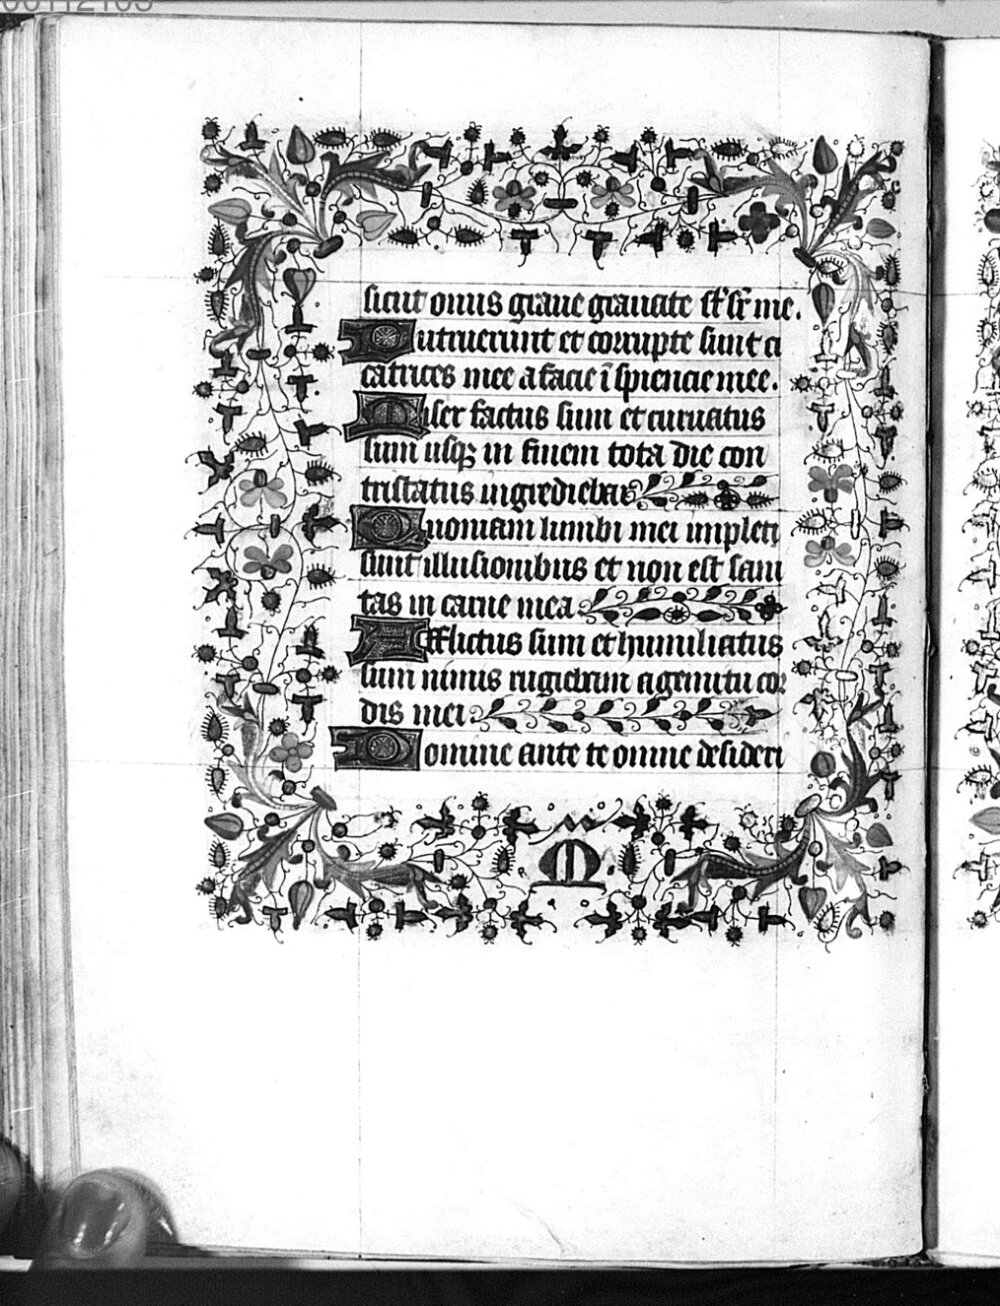 00112103
sicut onus graue grauate st̃ sr̃ me.
Putruerunt et corrupte sunt ci
catrices mee a facie ĩspiencie mee.
Miser factus sum et curuatus
sum usqꝫ in finem tota die con
tristatus ingrediebar
Quoniam lumbi mei impleti
sunt illusionibus et non est sani
tas in carne mea
Afflictus sum et humiliatus
sum nimis rugiebam a gemitu cor
dis mei
Domine ante te omne desideri
M